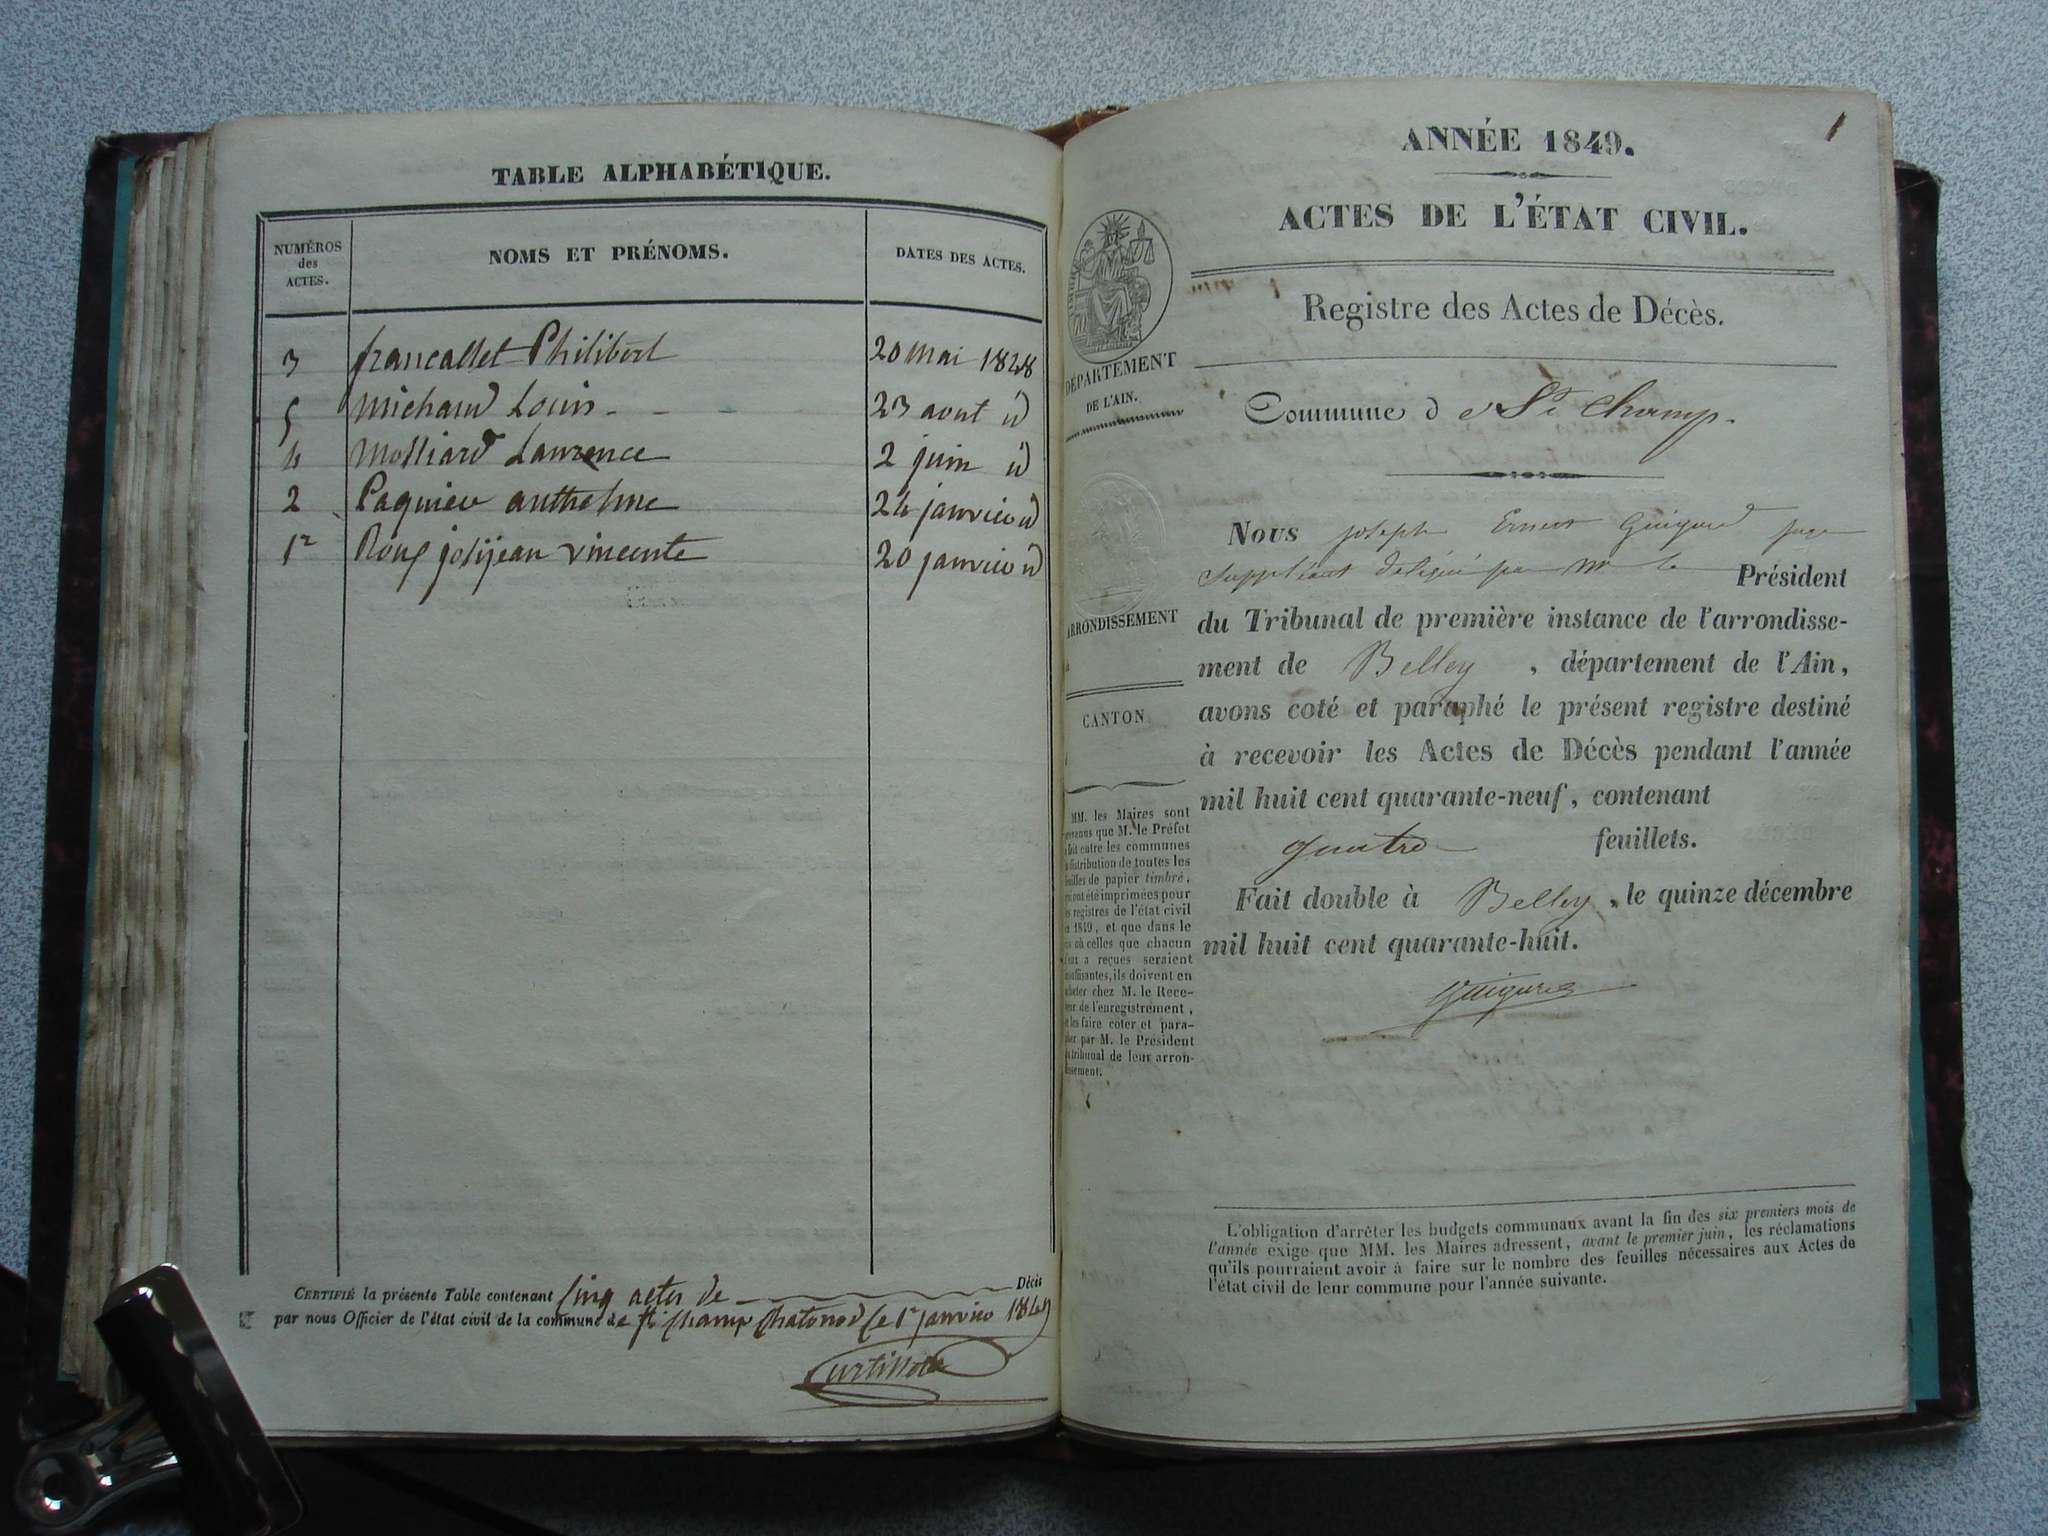 TABLE ALPHABÉTIQUE.
NUMÉROS des ACTES.
NOMS ET PRÉNOMS.
DATES DES ACTES.
3 francallet Philibert 20 mai 1848
5 Michaud Louis - - - 23 aout id
4 Molliard Laurence 2 juin id
2 Paquier anthelme 24 janvier id
1er Roux jolijean vincente 20 janvier id
CERTIFIÉ la présente Table contenant Cinq actes de Décès
par nous Officier de l'état civil de la commune de St Champ Chatonod le 1er janvier 1849
Curtillet
1
ANNÉE 1849.
ACTES DE L'ÉTAT CIVIL.
Registre des Actes de Décès.
DÉPARTEMENT
DE L'AIN.
Commune de St Champ.
Nous joseph Ernest Guigard juge
suppléant délégué par Mr le Président
du Tribunal de première instance de l'arrondisse-
ment de Belley, département de l'Ain,
avons coté et paraphé le présent registre destiné
à recevoir les Actes de Décès pendant l'année
mil huit cent quarante-neuf, contenant
quatre feuillets.
Fait double à Belley, le quinze décembre
mil huit cent quarante-huit.
Guigard
ARRONDISSEMENT
CANTON
MM. les Maires sont
que M. le Préfet
fait entre les communes
distribution de toutes les
feuilles de papier timbré,
ont été imprimées pour
registres de l'état civil
1849, et que dans le
où celles que chacun
a reçues seraient
insuffisantes, ils doivent en
acheter chez M. le Rece-
veur de l'enregistrement,
les faire coter et para-
pher par M. le Président
du tribunal de leur arron-
dissement.
L'obligation d'arrêter les budgets communaux avant la fin des six premiers mois de
l'année exige que MM. les Maires adressent, avant le premier juin, les réclamations
qu'ils pourraient avoir à faire sur le nombre des feuilles nécessaires aux Actes de
l'état civil de leur commune pour l'année suivante.